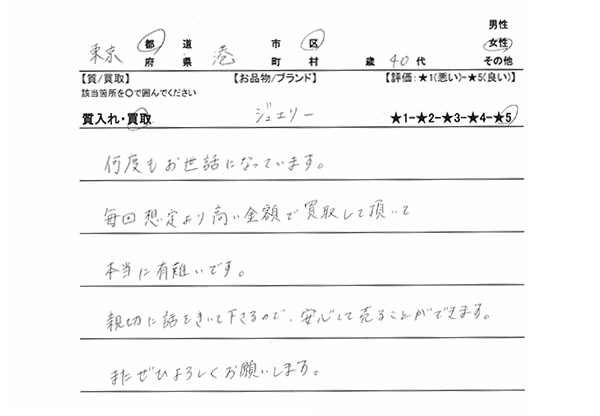 男性
東京 都道 港 市区 女性
府県 町村 歳 40代 その他
【質/買取】 【お品物/ブランド】 【評価:★1(悪い)-★5(良い)】
該当箇所を〇で囲んでください
質入れ・買取 ジュエリー ★1-★2-★3-★4-★5
何度もお世話になっています。
毎回想定より高い金額で買取して頂いて
本当に有難いです。
親切に話をきいて下さるので、安心して売ることができます。
またぜひよろしくお願いします。